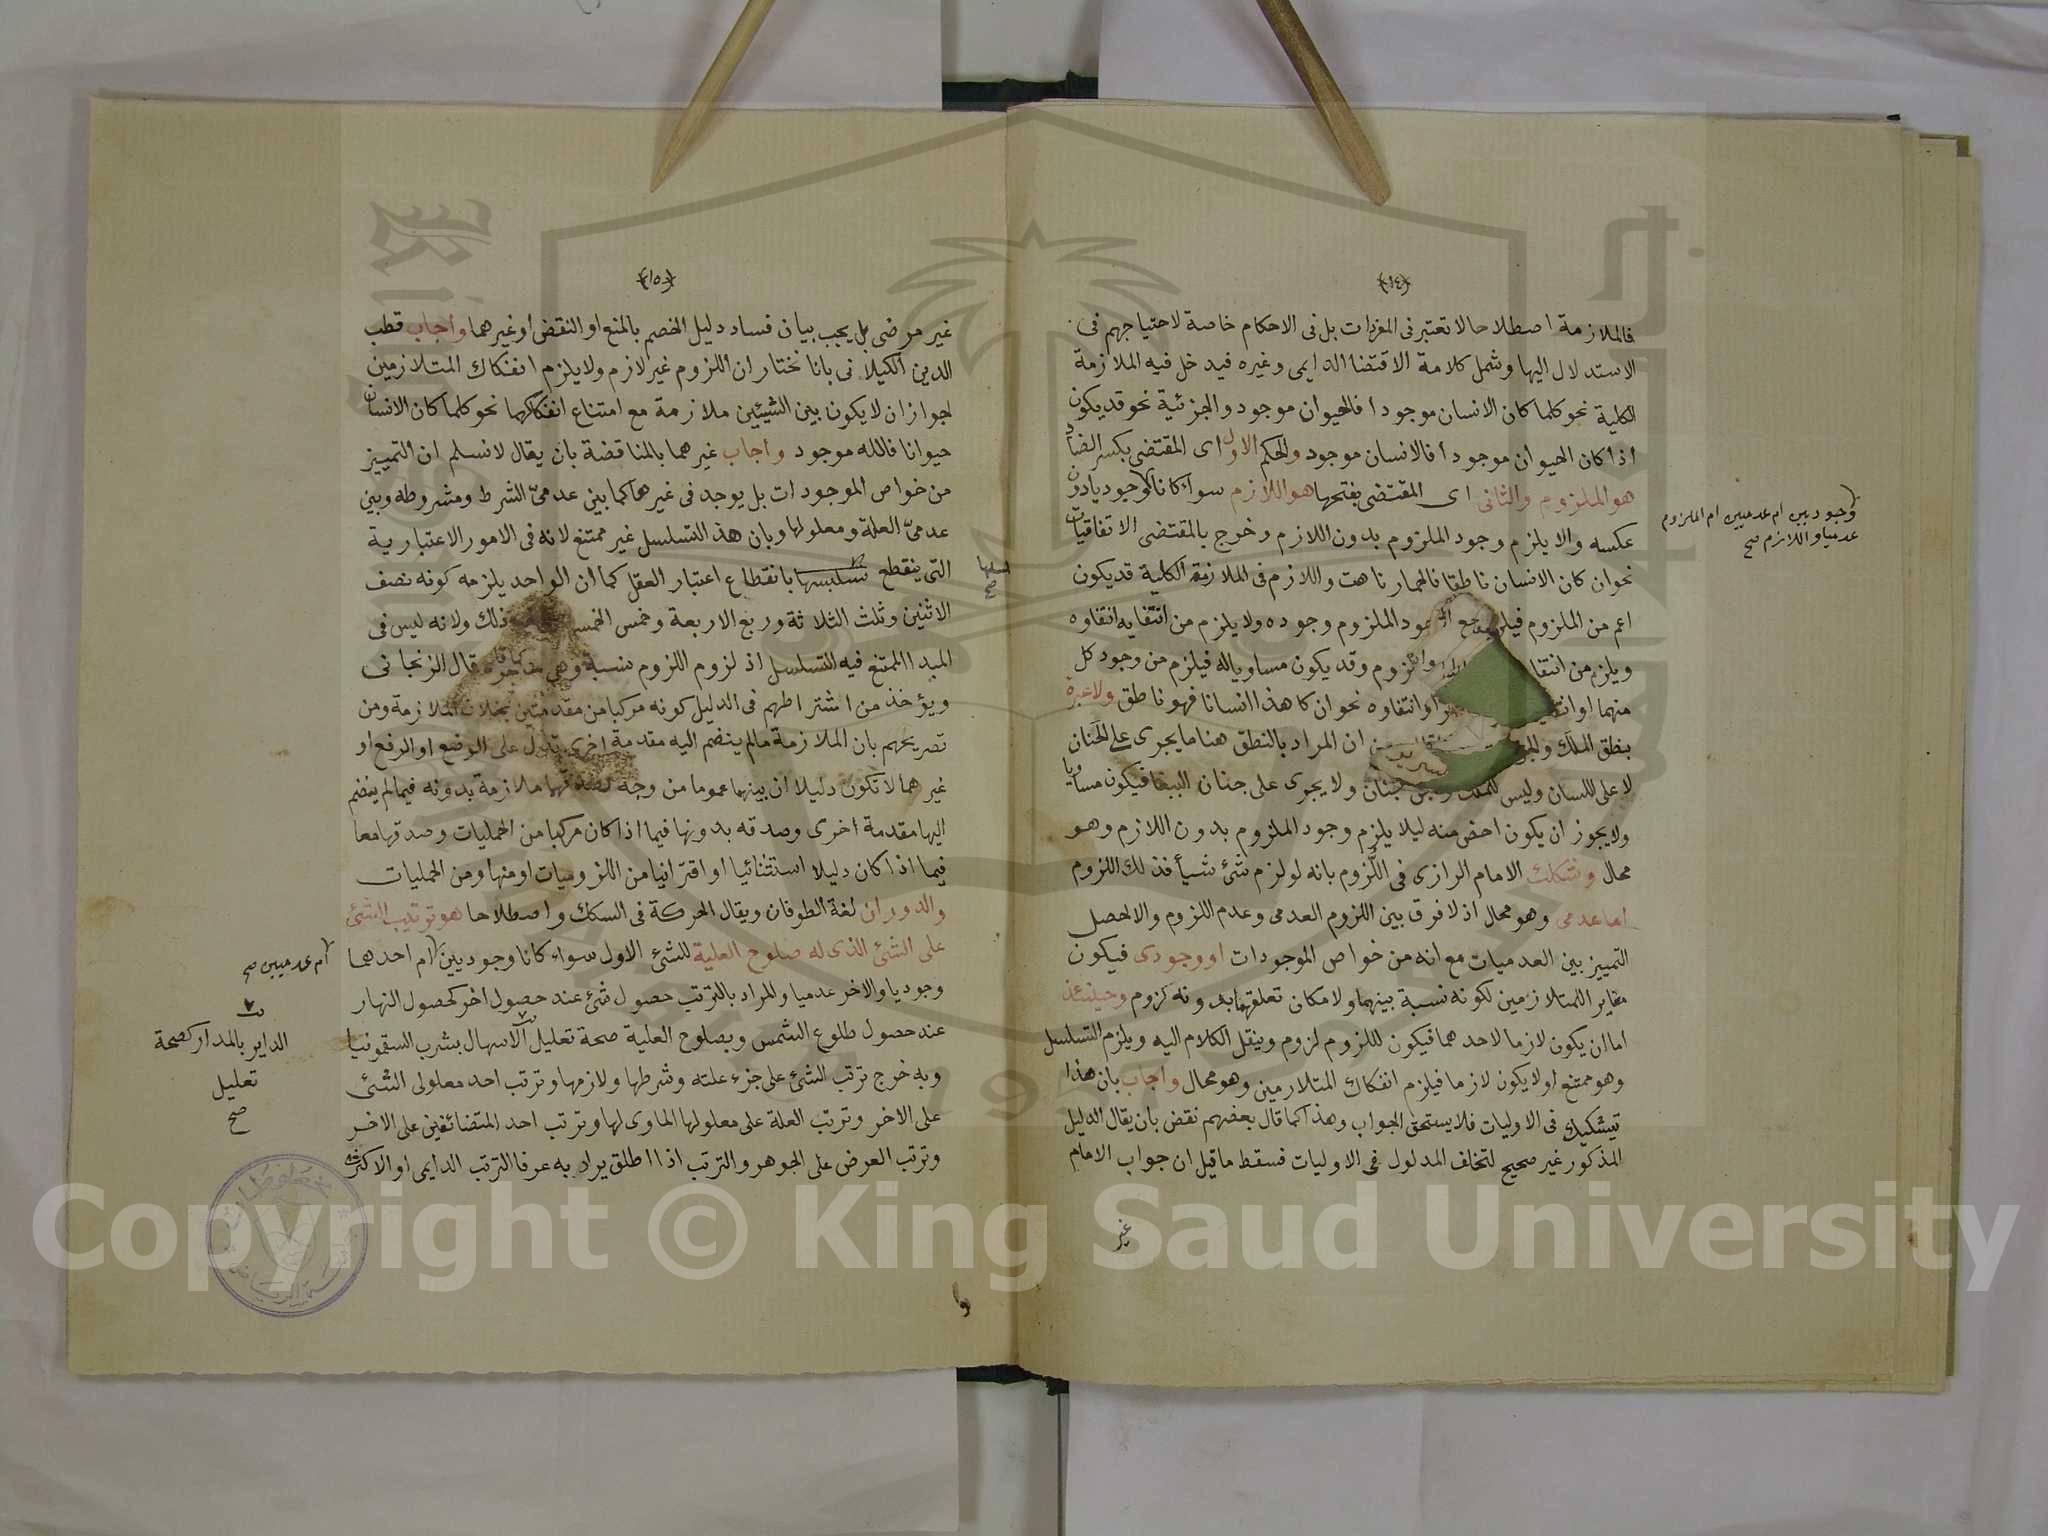 ﴿١٤﴾
فالملازمة اصطلاحا لا تعتبر فى المفردات بل فى الاحكام خاصة لاحتياجهم فى
الاستدلال اليها وشمل كلامة الاقتضا الدايمى وغيره فيدخل فيه الملازمة
الكلية نحو كلما كان الانسان موجودا فالحيوان موجود والجزئية نحو قد يكون
اذا كان الحيوان موجودا فالانسان موجود والحكم الاول اى المقتضى بكسر الضاد
هو الملزوم والثانى اى المقتضى بفتحها هو اللازم سواء كانا
وجوديين ام عدميين ام الملزوم
عدميا واللازم صح
عكسه والا يلزم وجود الملزوم بدون اللازم وخرج بالمقتضى الاتفاقيات
نحو ان كان الانسان ناطقا فالحمار ناهت واللازم فى الملازمة الكلية قد يكون
اعم من الملزوم الملزوم وجوده ولا يلزم من انتفايه انتفاوه
ويلزم من وقد يكون مساويا له فيلزم من وجود كل
منهما او او انتفاوه نحو ان كا هذا انسانا فهو ناطق ولا عبرة
بنطق الملك ان المراد بالنطق هنا ما يجرى على الجنان
لا على اللسان وليس جنان ولا يجرى على جنان الببغا فيكون مساويا
ولا يجوز ان يكون اخص منه ليلا يلزم وجود الملزوم بدون اللازم وهو
محال وشكك الامام الرازى فى اللزوم بانه لو لزم شئ شيأ فذلك اللزوم
اما عدمى وهو محال اذ لا فرق بين اللزوم العدمى وعدم اللزوم والا لحصل
التمييز بين العدميات مع انه من خواص الموجودات او وجودى فيكون
مغاير اللمتلازمين لكونه نسبة بينهما ولامكان تعلقهما بدونه لزوم وحينئذ
اما ان يكون لازما لاحدهما فيكون لللزوم لزوم وينقل الكلام اليه ويلزم التسلسل
وهو ممتنع او لا يكون لازما فيلزم انفكاك المتلازمين وهو محال واجاب بان هذا
تشكيك فى الاوليات فلا يستحق الجواب وهذا كما قال بعضهم نقض بان يقال الدليل
المذكور غير صحيح لتخلف المدلول فى الاوليات فسقط ما قيل ان جواب الامام
غير
﴿١٥﴾
غير مرضى بل يجب بيان فساد دليل الخصم بالمنع او النقض او غيرهما واجاب قطب
الدين الكيلانى بانا نختار ان اللزوم غير لازم ولا يلزم انفكاك المتلازمين
لجواز ان لا يكون بين الشيئين ملازمة مع امتناع انفكاكهما نحو كلما كان الانسان
حيوانا فالله موجود واجاب غيرهما بالمناقضة بان يقال لا نسلم ان التمييز
من خواص الموجودات بل يوجد فى غيرها كما بين عدمىّ الشرط ومشروطه وبين
عدمىّ العلة ومعلولها وبان هذا التسلسل غير ممتنع لانه فى الامور الاعتبارية
التى ينقطع تسلسها بانقطاع اعتبار العقل كما ان الواحد يلزمه كونه نصف
تسلسلها
صح
الاثنين وثلث الثلاثة وربع الاربعة وخمس ذلك ولانه ليس فى
المبدا الممتنع فيه التسلسل اذ لزوم اللزوم نسبة وهى قال الزنجانى
ويؤخذ من اشتراطهم فى الدليل كونه مركبا من مقدمتين بخلاف الملازمة ومن
تصريحهم بان الملازمة ما لم ينضم اليه مقدمة اخرى تدل على الوضع او الرفع او
غيرهما لا تكون دليلا ان بينهما عموما من وجه ملازمة بدونه فيما لم ينضم
اليها مقدمة اخرى وصدقه بدونها فيما اذا كان مركبا من الحمليات وصدقهما معا
فيما اذا كان دليلا استثنائيا او اقترانيا من اللزوميات او منها ومن الحمليات
والدوران لغة الطوفان ويقال الحركة فى السكك واصطلاحا هو ترتيب الشئ
على الشئ الذى له صلوح العلية للشئ الاول سواء كانا وجوديين ام احدهما
ام عدميين صح
وجوديا والاخر عدميا والمراد بالترتب حصول شئ عند حصول اخر كحصول النهار
عند حصول طلوع الشمس وبصلوح العلية صحة تعليل الاسهال بشرب السقمونيا
الداير بالمدار كصحة
تعليل
صح
وبه خرج ترتب الشئ على جزء علته وشرطها ولازمها وترتب احد معلولى الشئ
على الاخر وترتب العلة على معلولها الماوى لها وترتب احد المتضائفين على الاخر
وترتب العرض على الجوهر والترتب اذا اطلق يراد به عرفا الترتب الدايمى او الاكثرى
Copyright © King Saud University
1957